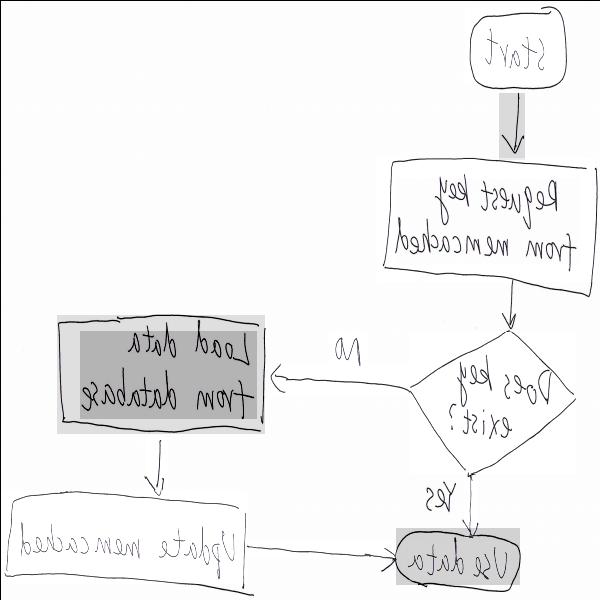 Start
Request key
from memcached
Does key
exist?
No
Load data
from database
Yes
Update memcached
Use data